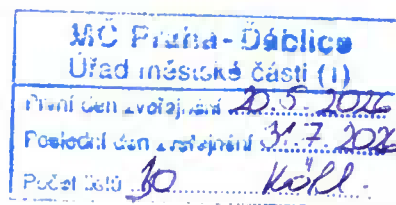 MČ Praha - Ďáblice
Úřad městské části (1)
První den zveřejnění 20.5. 2026
Poslední den zveřejnění 31.7. 2026
Počet listů 30